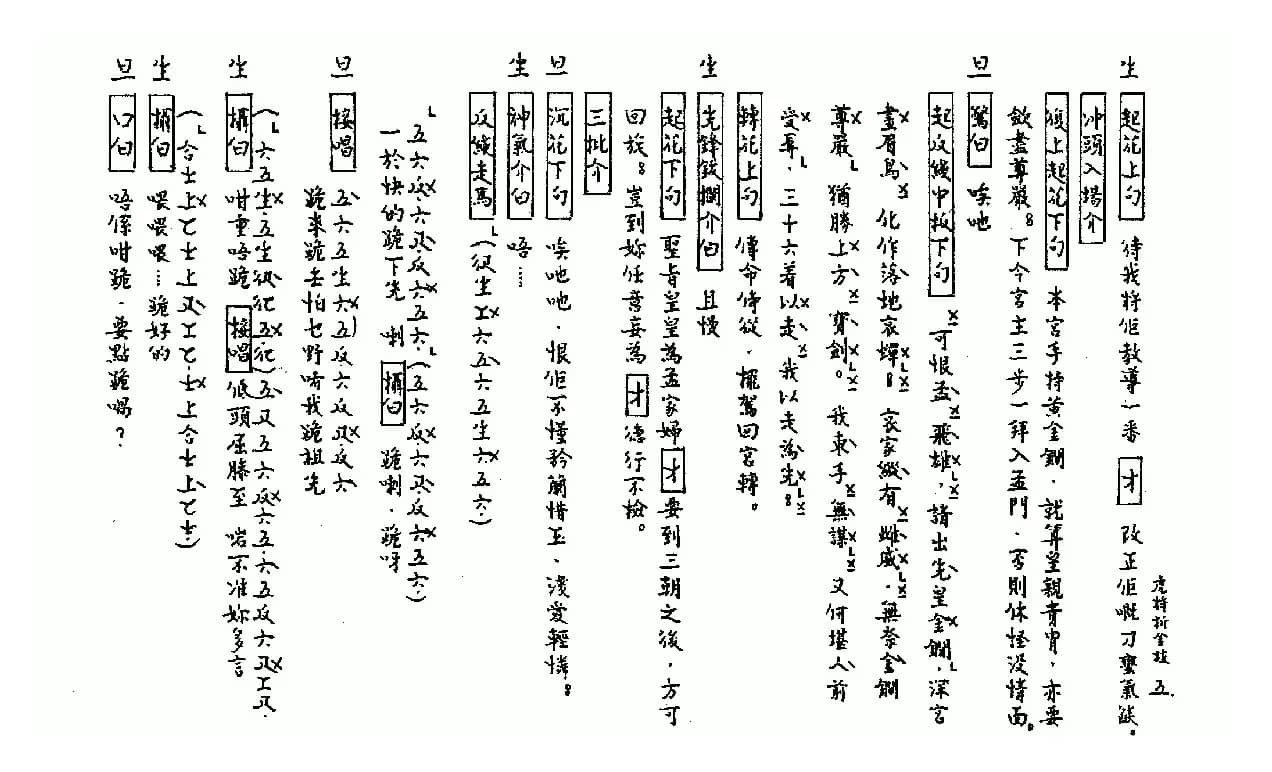 虎將折金枝 五.
生 起花上句 待我將佢教導一番 才 改正佢嘅刁蠻氣燄。
冲頭入場介
復上起花下句 本宮手持黃金鐧，就算皇親貴胄，亦要
斂盡尊嚴。下令宮主三步一拜入孟門，否則休怪沒情面。
旦 驚白 唉吔
起反綫中板下句 可恨孟飛雄，請出先皇金鐧，深宮
畫眉鳥 化作落地哀蟬。哀家縱有雌威，無奈金鐧
尊嚴 猶勝上方寶劍。我束手無謀 又何堪人前
受辱，三十六着以走 我以走為先。
轉花上句 傳命侍從，擺駕回宮轉。
生 先鋒鈸攔介白 且慢
起花下句 聖旨皇皇為孟家婦 才 要到三朝之後，方可
回旋。豈到妳任意妄為 才 德行不檢。
三批介
旦 沉花下句 唉吔吔，恨佢不懂矜蘭惜玉，淺愛輕憐。
生 神氣介白 唔……
反綫走馬 (伬生工六五六五生六五六.)
五六反.六又反六五六.(五六反六又反六五六.)
一於快的跪下先 喇 攝白 跪喇，跪呀
旦 接唱 五六五生六五)反.六反又.反六
跪來跪去怕乜野啫我跪祖先
(六五生.五生伬仩五仩)五又五六反六五.六五反六又工又.
生 攝白 咁重唔跪 接唱 低頭屈膝至 啱不准妳多言
(合士上乙士上又工乙.士上合士上乙士.)
生 攝白 喂喂喂……跪好的
旦 口白 唔係咁跪，要點跪喎？